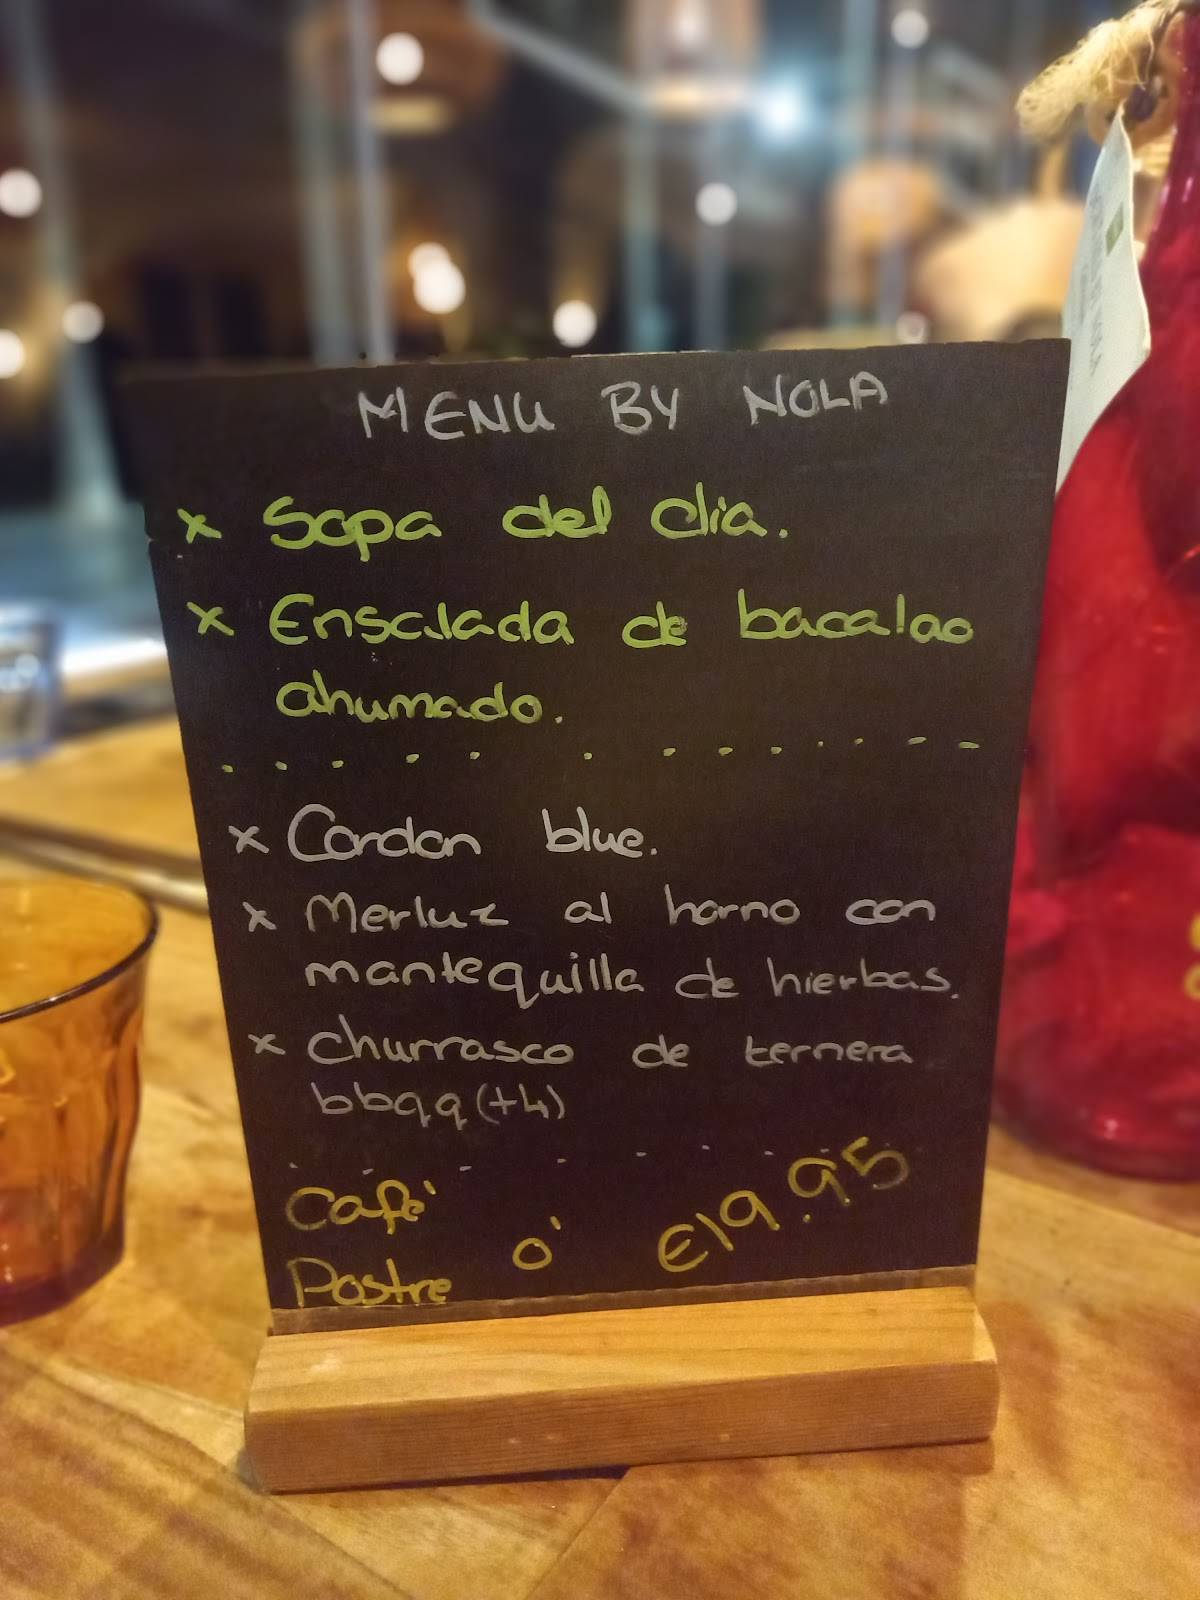 MENU BY NOLA
x Sopa del dia.
x Ensalada de bacalao
ahumado.
x Cordon blue.
x Merluz al horno con
mantequilla de hierbas.
x Churrasco de ternera
bbqq (+4)
Café
Postre o' €19.95